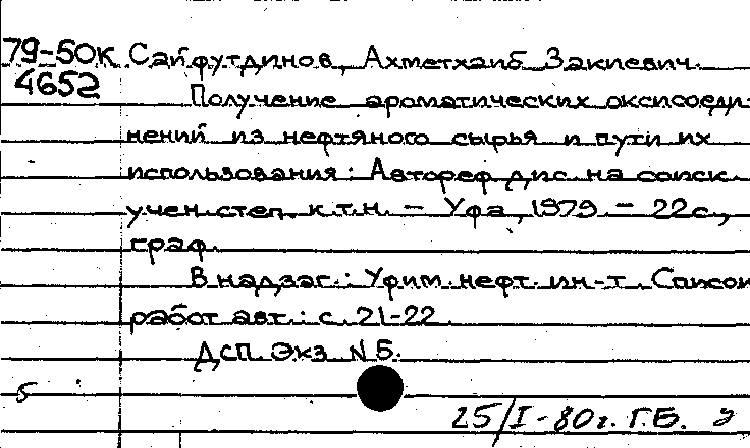 79-50к Сайфутдинов, Ахметхаиб Закиевич.
4652
Получение ароматических оксисоеди-
нений из нефтяного сырья и пути их
использования: Автореф. дис. на соиск.
учен. степ. к.т.н. - Уфа, 1979. - 22с.,
граф.
В надзаг.: Уфим. нефт. ин-т. Список
работ авт.: с. 21-22.
ДСП. Экз. N 5.
5
25/I-80г. Г.Б.